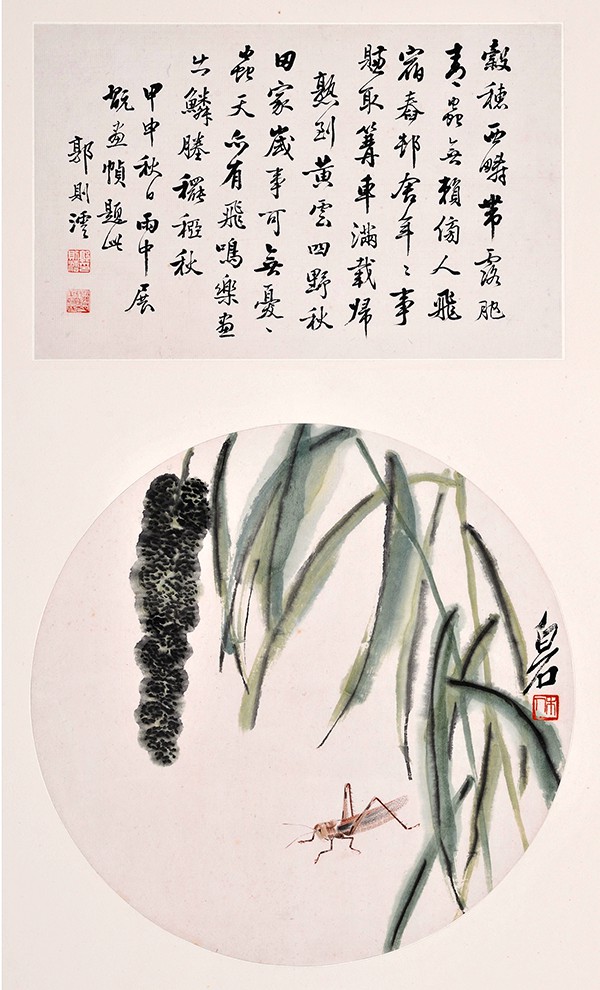 穀穗西疇帶露肥
青蟲無賴傍人飛
宿舂邨舍年々事
賸取篝車滿載歸
熟到黃雲四野秋
田家歲事可無憂
蟲天亦有飛鳴樂畫
出鱗塍䆉稏秋
甲申秋日雨中展
翫畫幀題此
郭則澐
白石
木人